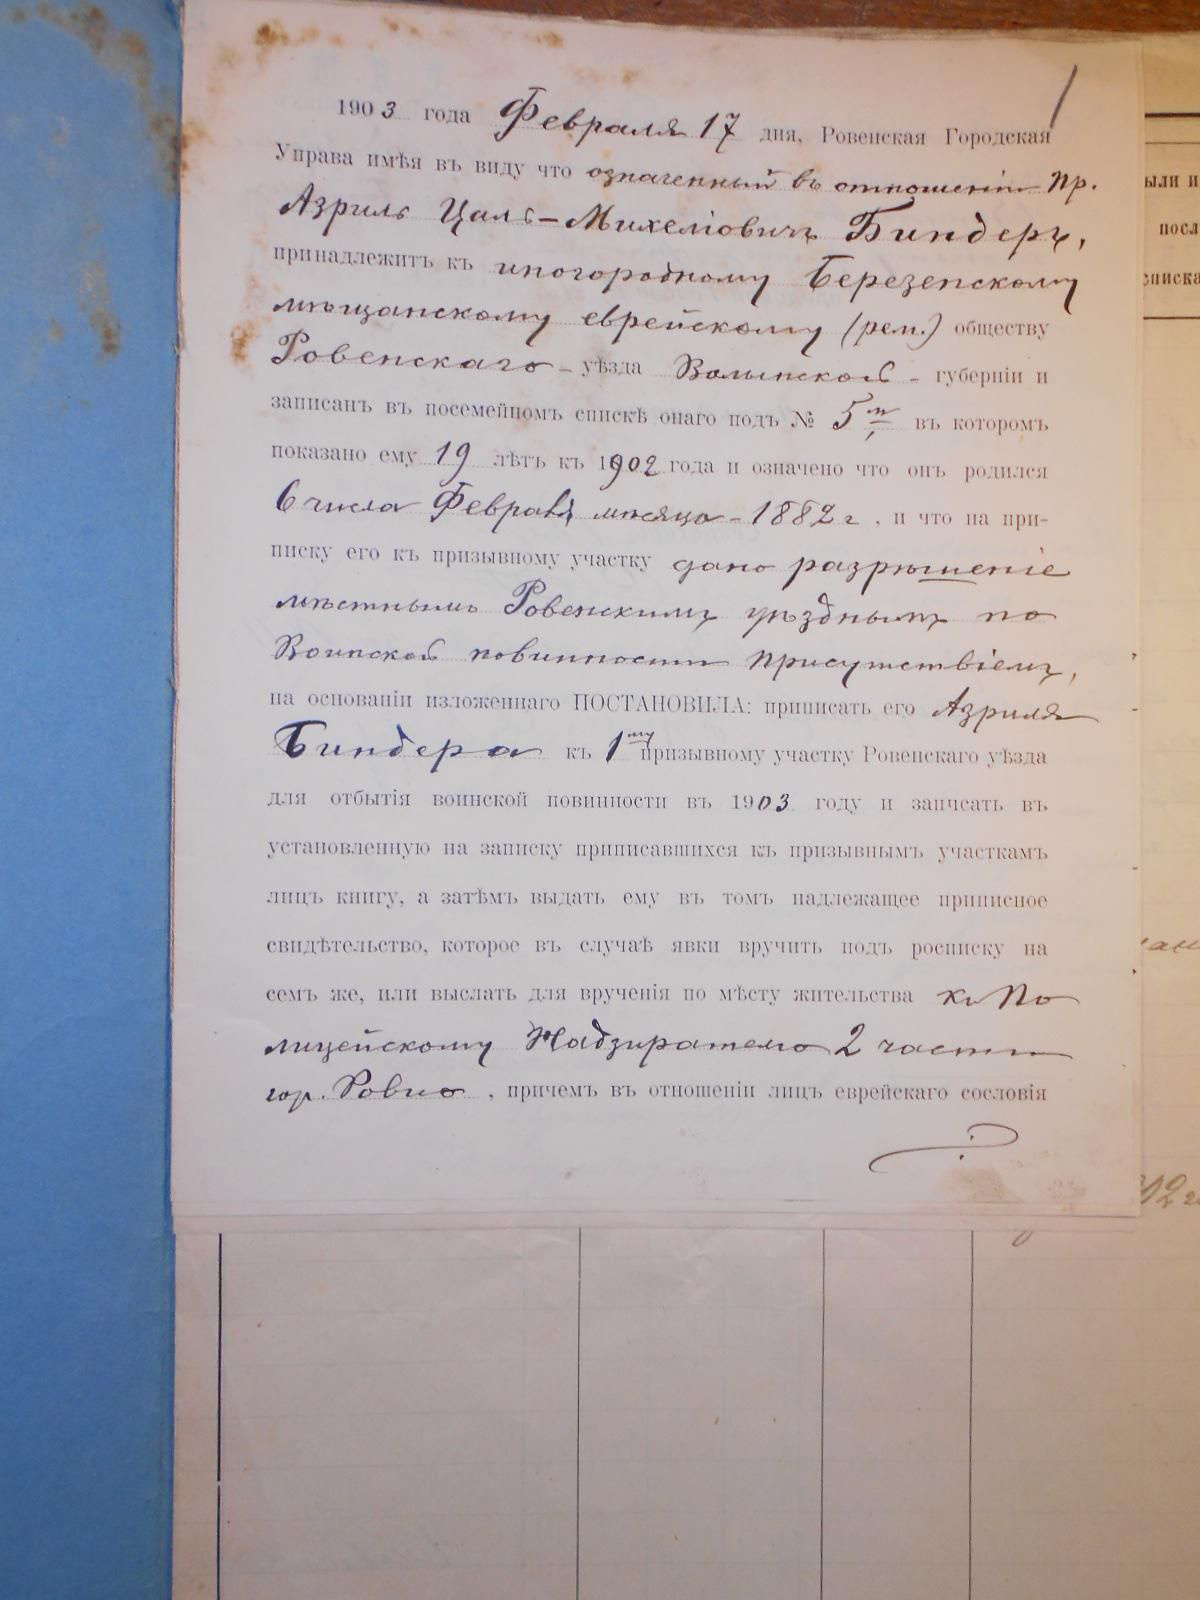 1903 года Февраля 17 дня, Ровенская Городская
Управа имѣя въ виду что означенный въ отношеніи пр.
Азриль Цаль-Михеліовичъ Биндеръ,
принадлежитъ къ иногородному Березенскому
мѣщанскому еврейскому (рем.) обществу
Ровенскаго уѣзда Волынской губерніи и
записанъ въ посемейномъ спискѣ онаго подъ № 5 въ которомъ
показано ему 19 лѣтъ къ 1902 года и означено что онъ родился
6 числа Февраля мѣсяца 1882 г , и что на при-
писку его къ призывному участку дано разрѣшеніе
мѣстнымъ Ровенскимъ уѣзднымъ по
Воинской повинности присутствіемъ,
на основаніи изложеннаго ПОСТАНОВИЛА: приписать его Азриля
Биндера къ 1му призывному участку Ровенскаго уѣзда
для отбытія воинской повинности въ 1903 году и записать въ
установленную на записку приписавшихся къ призывнымъ участкамъ
лицъ книгу, а затѣмъ выдать ему въ томъ надлежащее приписное
свидѣтельство, которое въ случаѣ явки вручить подъ росписку на
семъ же, или выслать для врученія по мѣсту жительства къ По
лицейскому Надзирателю 2 части
гор. Ровно , причемъ въ отношеніи лицъ еврейскаго сословія